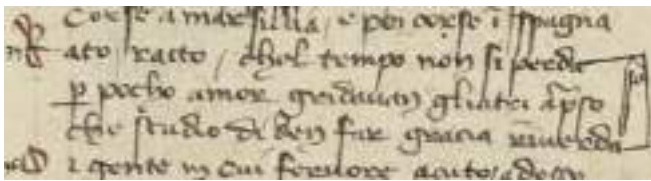 Corse a marsillia, e poi corse ĩ spagna
ato, racto, chel tempo non si perda
p̲ pocho amor gridauan gli altri apso
che studio di ben far gracia rinuerda
i gente in cui feruore acuto adesso